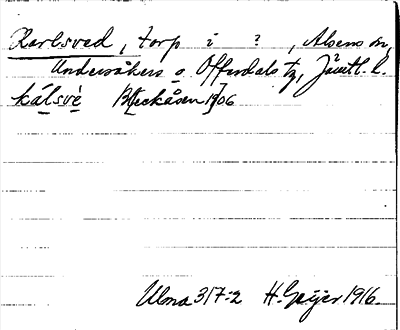 Karlsved, torp i ?, Alsens sn,
Undersåkers o. Offerdals tg, Jämtl. l.
kálsvè B[leckåsen 1906
Ulma 317:2 H. Geijer 1916.